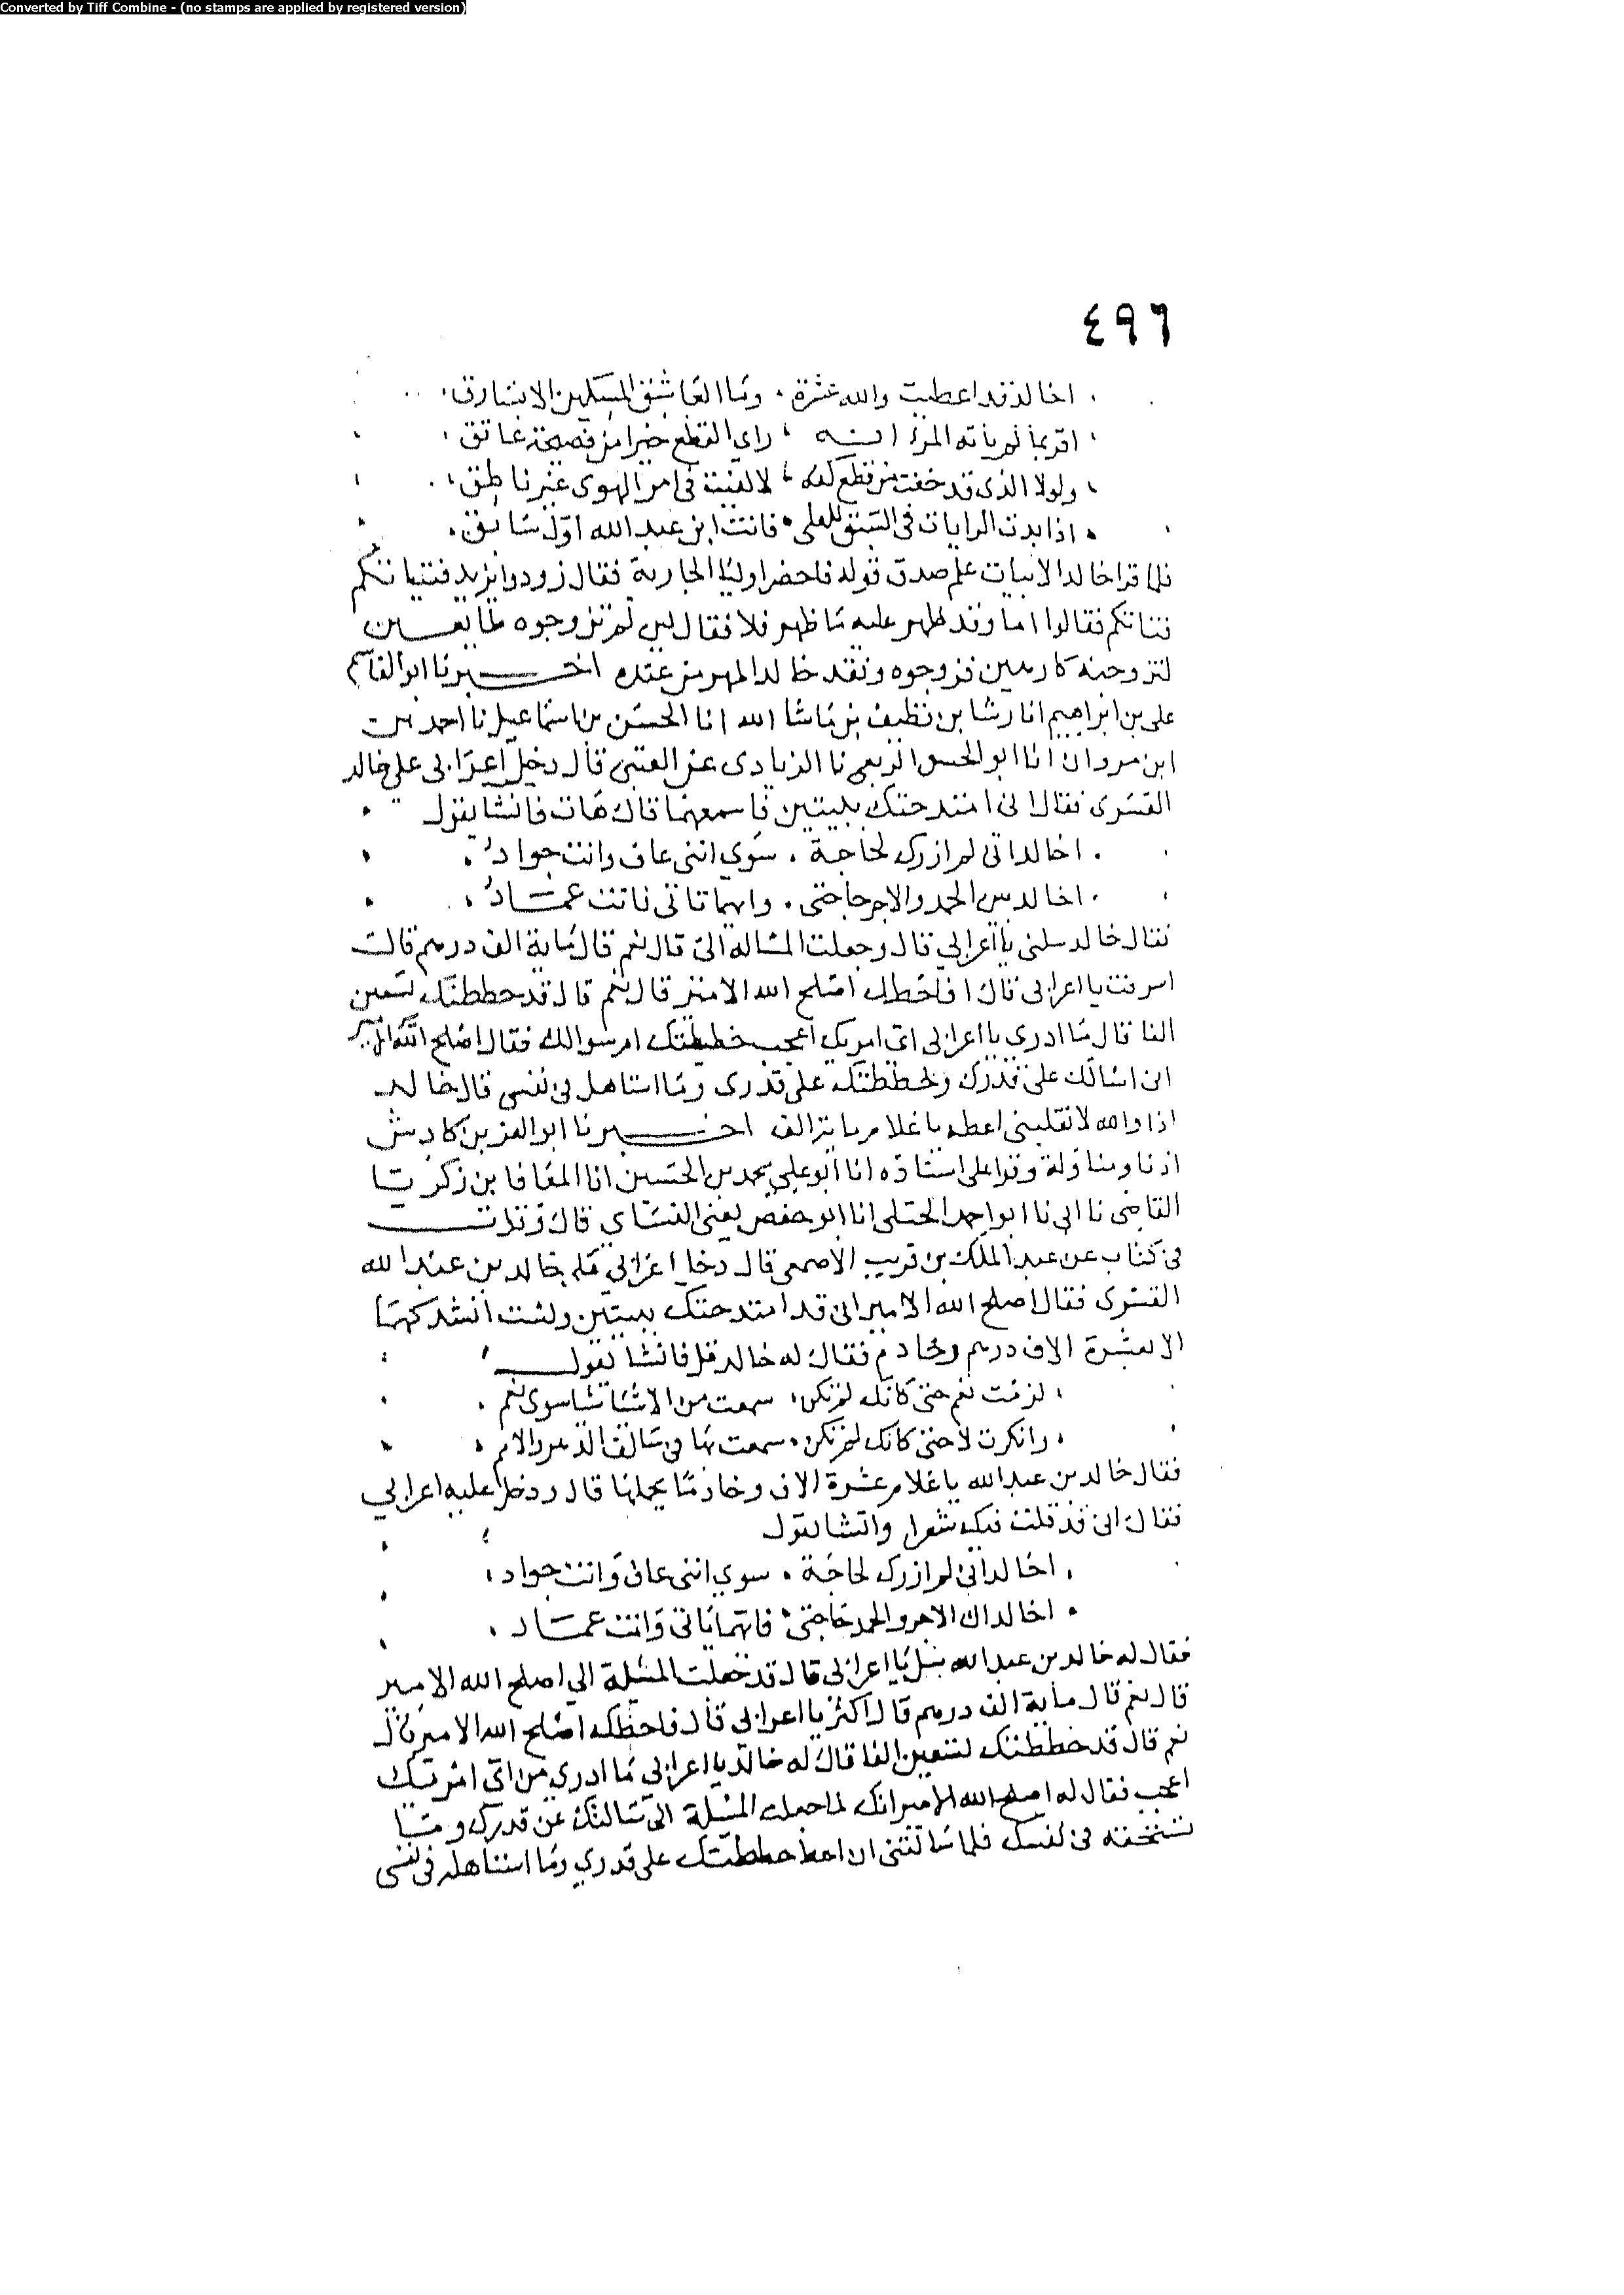 Converted by Tiff Combine - (no stamps are applied by registered version)
٤٩٦
اخالد قد اعطيت والله عشرة . وما العاشق المسكين الا بسارق
اقر بما لم ياته المرء انه راى القطع خيرا من فضيحة عاتق
ولولا الذى قد خفت من قطع كفه لالفيت فى امر الهوى غير ناطق
اذا بدت الرايات فى السبق للعلى فانت ابن عبد الله اول سابق
فلما قرا خالد الابيات علم صدق قوله فاحضر اوليا الجارية فقال زوجوا يزيد فتياتكم
فتاتكم فقالوا اما وقد ظهر عليه ما ظهر فلا فقال لين لم تزوجوه طايعين
لتزوجنه كارهين فزوجوه ونقد خالد المهر من عنده اخبرنا ابو القاسم
على بن ابراهيم انا رشا بن نظيف بن ماشا الله انا الحسن بن اسماعيل نا احمد بن
ابن مروان انا ابو الحسن الربعى نا الزيادى عن العتبى قال دخل اعرابى على خالد
القسرى فقال انى امتدحتك ببيتين فاسمعهما قال هات فانشا يقول
اخالد انى لم ازرك لحاجة . سوى اننى عاف وانت جواد
اخالد بين الحمد والاجر حاجتى . وايهما تاتى فانت عماد
فقال خالد سلنى يا اعرابي قال وجعلت المساله الى قال نعم قال مايه الف درهم قال
اسرفت يا اعرابى قال افاحطك اصلح الله الامير قال نعم قال قد حططتك تسعين
الفا قال ما ادرى يا اعرابى اى امريك اعجب حطيطتك ام سوالك فقال اصلح الله الامير
انى اسالك على قدرك وحططتك على قدرى وما استاهل فى نفسى قال خالد
اذا والله لا تغلبنى اعطه يا غلام مايه الف اخبرنا ابو العز بن كادش
اذنا ومناولة وقرا على اسناده انا ابو على محمد بن الحسين انا المعافا بن زكريا
القاضى نا ابى نا ابو احمد الختلى انا ابو حفص يعنى النسائى قال قرات
فى كتاب عن عبد الملك بن قريب الاصمعى قال دخل اعرابي على خالد بن عبد الله
القسرى فقال اصلح الله الامير انى قد امتدحتك ببيتين ولست انشدكهما
الا بعشرة الاف درهم وخادم فقال له خالد قل فانشا يقول
لزمت نعم حتى كانك لم تكن سمعت من الاشيا شيا سوى نعم
وانكرت لا حتى كانك لم تكن سمعت بها فى سالف الدهر والامم
فقال خالد بن عبد الله يا غلام عشرة الاف وخادما يحملها قال ودخل عليه اعرابي
فقال انى قد قلت فيك شعرا وانشا يقول
اخالد انى لم ازرك لحاجة . سوى اننى عاف وانت جواد
اخالد ان الاجر والحمد حاجتى فايهما ياتى وانت عماد
فقال له خالد بن عبد الله سل يا اعرابى قال قد جعلت المسيلة الي اصلح الله الامير
قال نعم قال ماية الف درهم قال اكثرت يا اعرابى قال فاحطك اصلح الله الامير قال
نعم قال قد حططتك تسعين الفا قال له خالد يا اعرابى ما ادرى من اى امريك
اعجب فقال له اصلح الله الامير انك لما جعلت المسيلة الى سالتك عن قدرك وما
تستحقه فى نفسك فلما سالتنى ان احط حططتك على قدرى وما استاهله فى نفسى